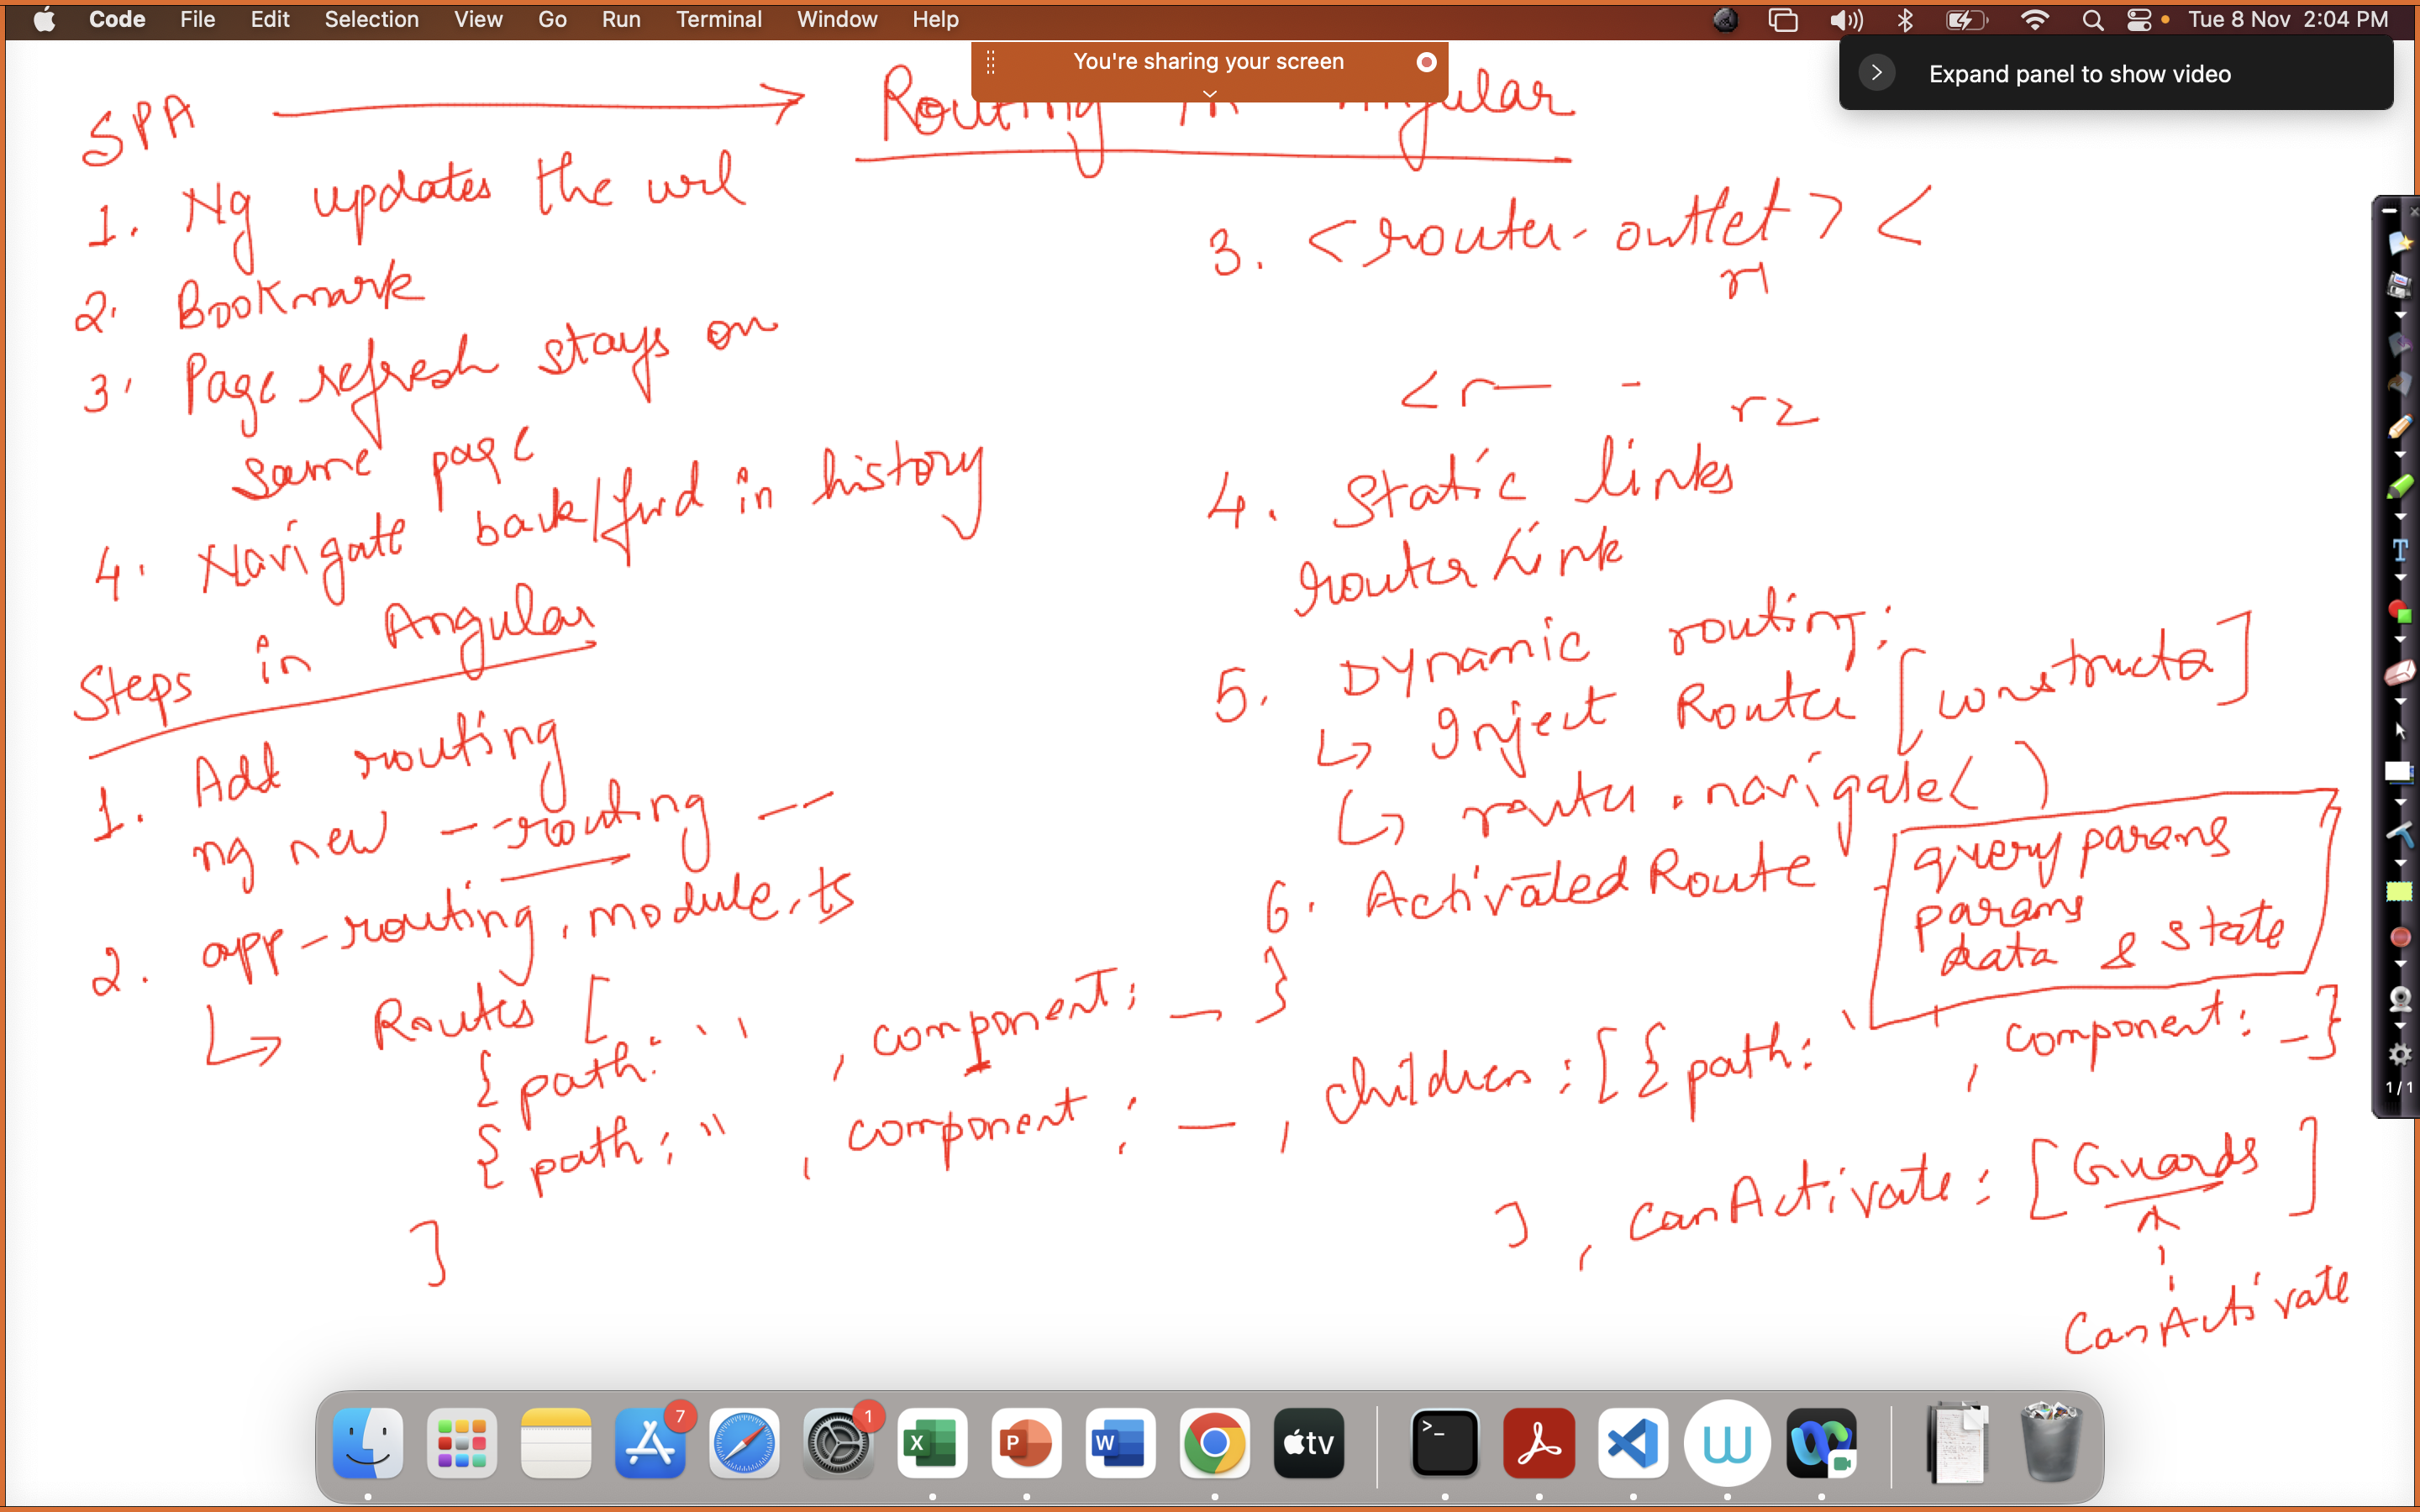 Code File Edit Selection View Go Run Terminal Window Help Tue 8 Nov 2:04 PM
You're sharing your screen
Expand panel to show video
SPA → Routing in Angular
1. Ng updates the url
2. Bookmark
3. Page refresh stays on
same page
4. Navigate back/fwd in history
Steps in Angular
1. Add routing
ng new --routing --
2. app-routing.module.ts
↳ Routes [
{ path: '' , component: _ }
{ path: '' , component: _ , children: [ { path: '' , component: _ }
] , canActivate: [Guards]
CanActivate
]
3. <router-outlet> <
r1
<r— -
r2
4. Static links
routerLink
5. Dynamic routing:
↳ Inject Router [constructor]
↳ router.navigate()
6. ActivatedRoute
query params
params
data & state
1/1
7
1
X
P
W
tv
>_